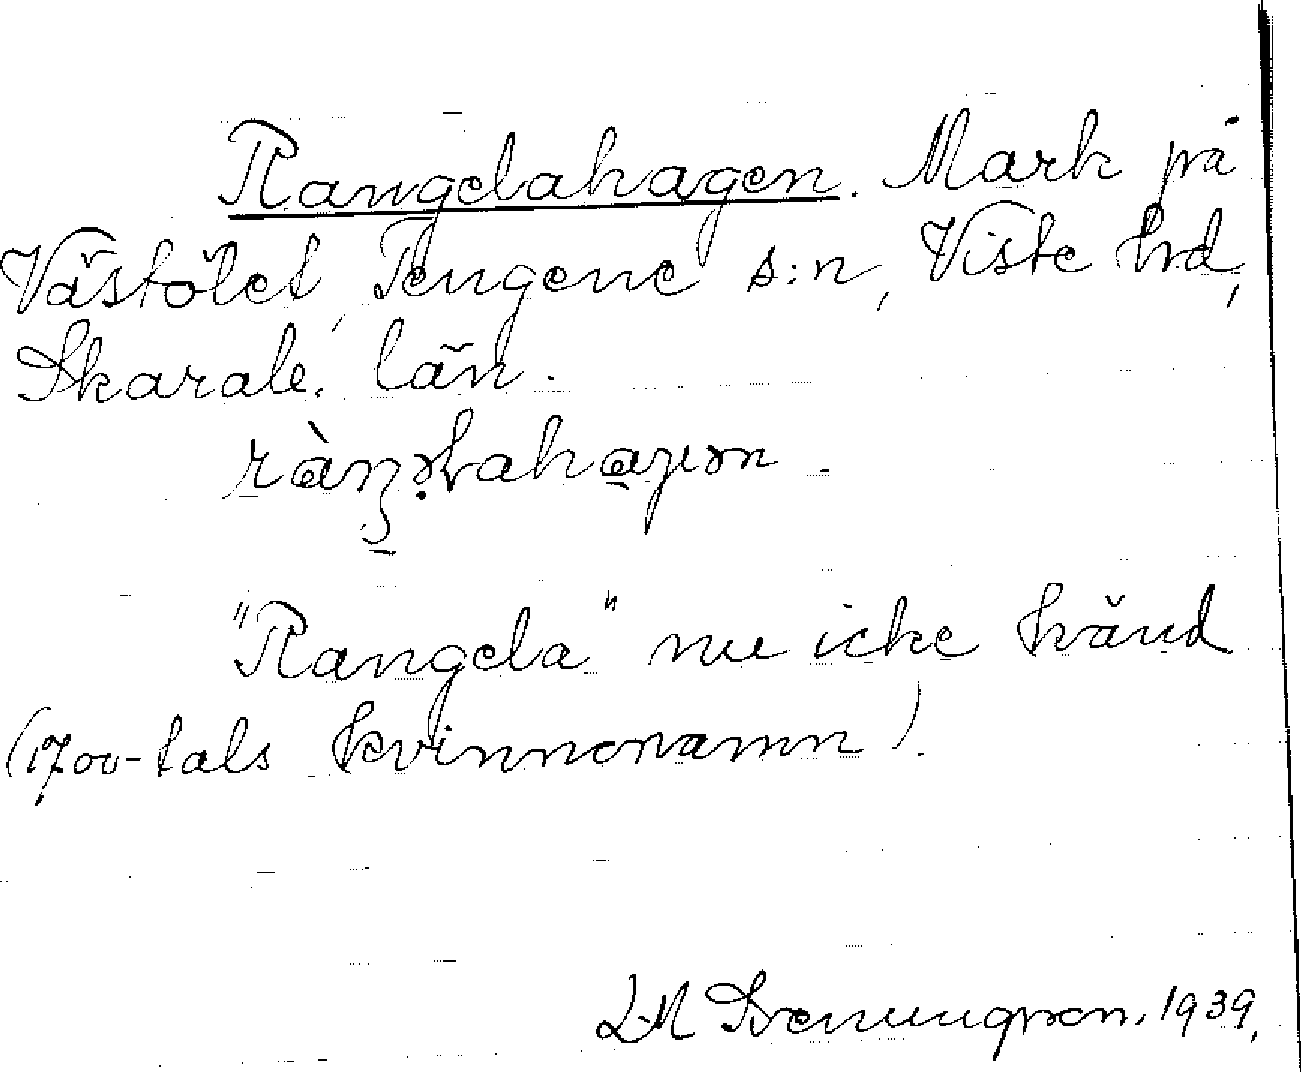 Rangelahagen. Mark på
Västölet, Tengene s:n, Viste hd,
Skarab. län.
"Rangela" nu icke känd
(1700-tals kvinnonamn).
L-M Svenungsson. 1939.